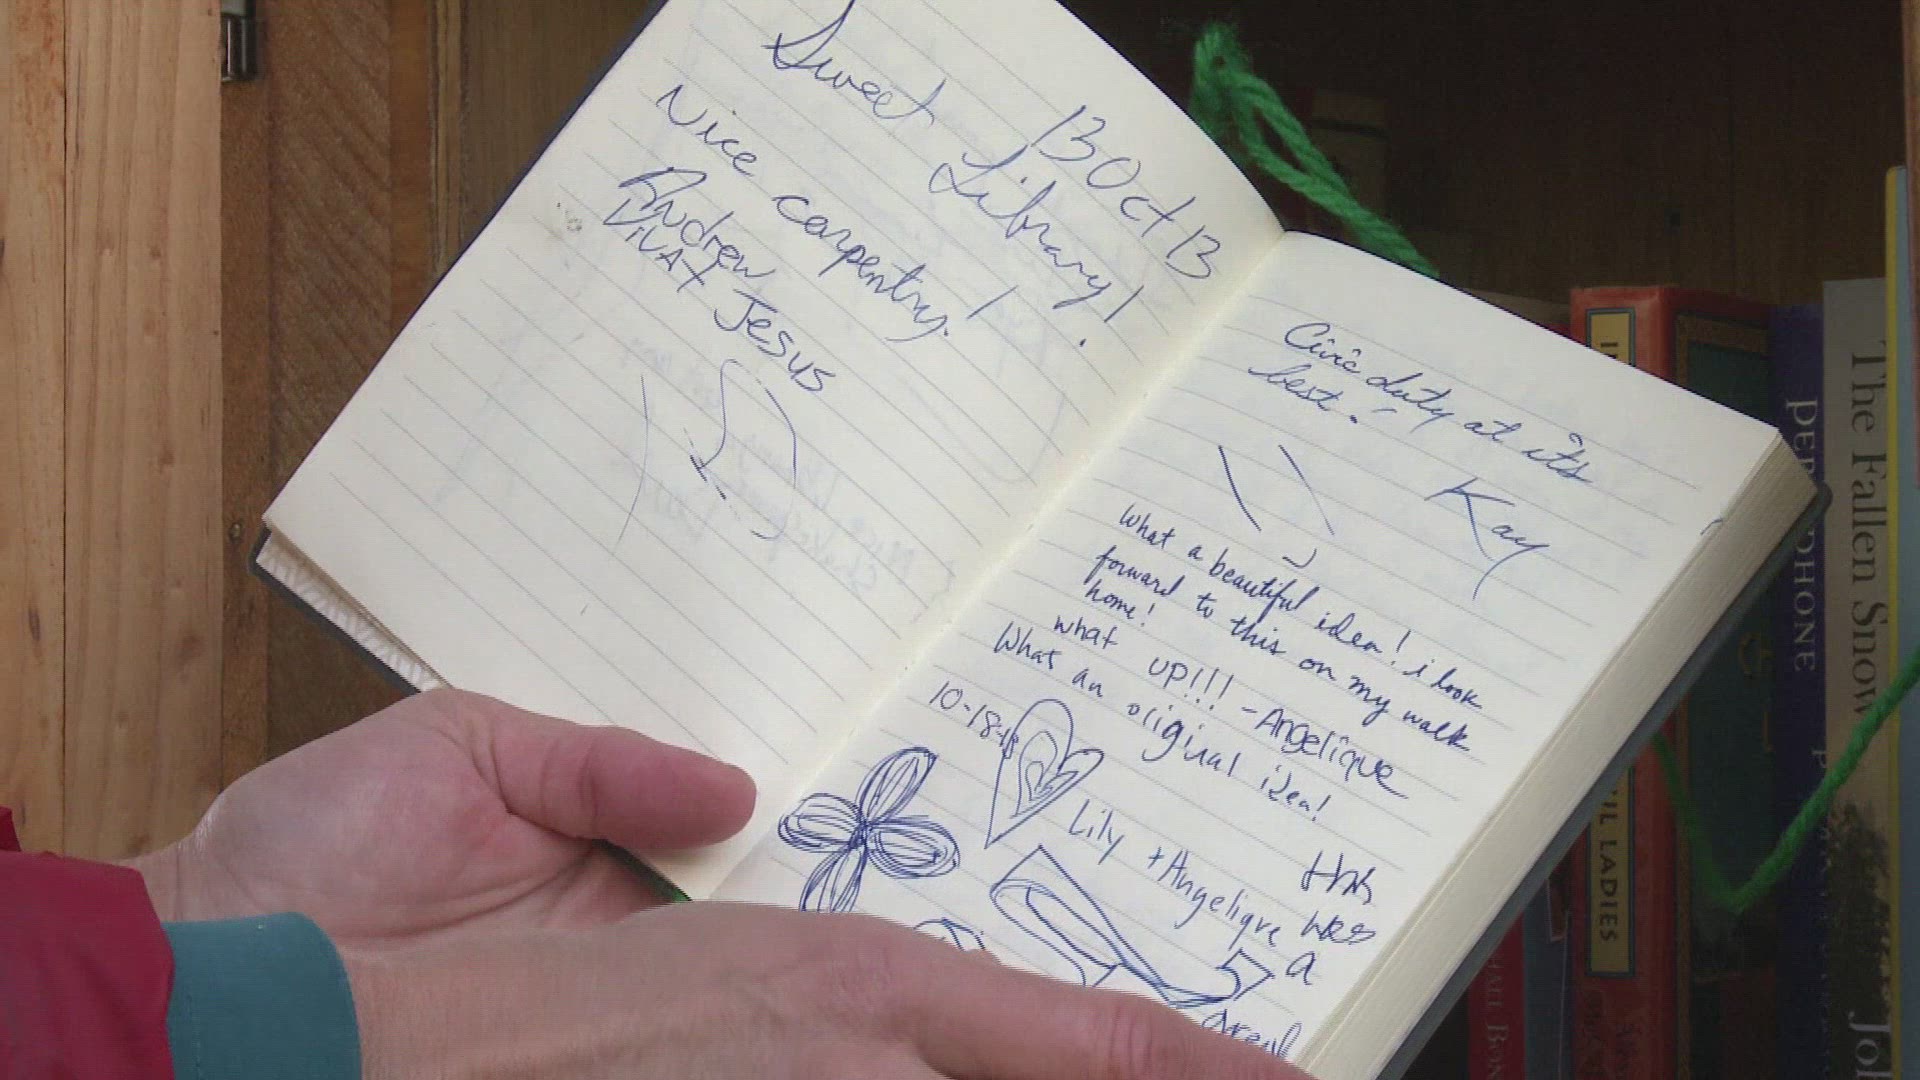 13 Oct 13
Sweet Library!
Nice carpentry!
Andrew
VIVAT JESUS
Civic duty at its
best.
Kay
What a beautiful idea! i look
forward to this on my walk
home!
what up!!! -Angelique
What an original idea!
10-18-13
Lily + Angelique
was
a
PERSEPHONE
The Fallen Snow
LADIES